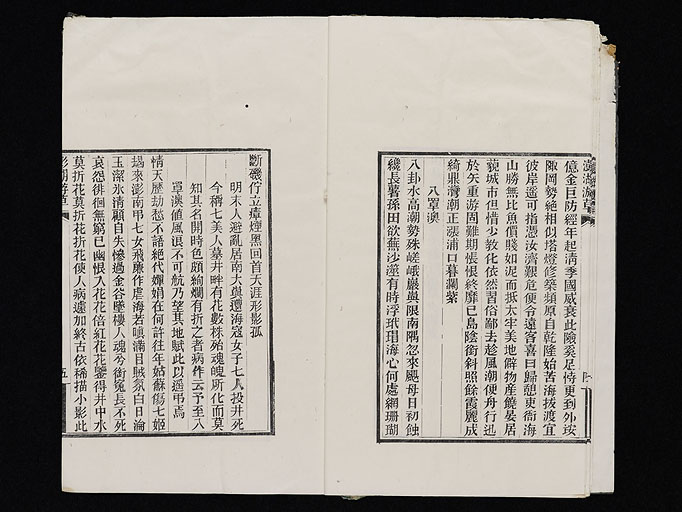 澎湖游草
億金巨防經年起清季國威衰此險奚足恃更到外垵
陬岡勢絶相似塔燈修築頻原自乾隆始苦海拔渡宜
彼岸遥可指憑汝濟艱危便令遠客喜曰歸憩吏衙海
山勝無比魚價賤如泥而抵太牢美地僻物產饒晏居
藐城市但惜少教化依然習俗鄙去趁風潮便舟行迅
於矢重游固難期悵恨終靡已島陰銜斜照餘霞麗成
綺鼎灣潮正漲浦口暮瀾紫
八罩澳
八卦水高潮勢殊嵯峨巖與限南隅忽來颶母日初蝕
幾長薯孫田欲蕪沙瀣有時浮玳瑁海心何處網珊瑚
斷磯佇立瘴煙黑回首天涯形影孤
明末人避亂居南大嶼遭海寇女子七人投井死
今稱七美人墓井畔有花數株殆魂魄所化而莫
知其名開時色頗絢爛有折之者病作云予至八
罩澳値風浪不可航乃望其地賦此以遥弔焉
情天歷劫愁不語絶代嬋娟在何許往年姑蘇傷七姬
朅來澎南弔七女飛廉作虐海若嗔滿目賊氛白日淪
玉潔氷清顧自失慘過金谷墜樓人魂兮銜冤長不死
哀怨徘徊無窮已幽恨入花花倍紅花花鑒得井中水
莫折花莫折花折花使人病遽加終古依稀描小影此
澎湖游草
五